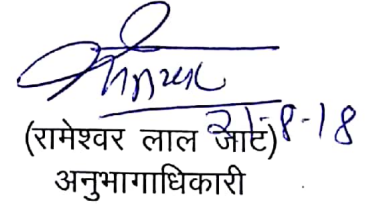 21-8-18
(रामेश्वर लाल जाट)
अनुभागाधिकारी